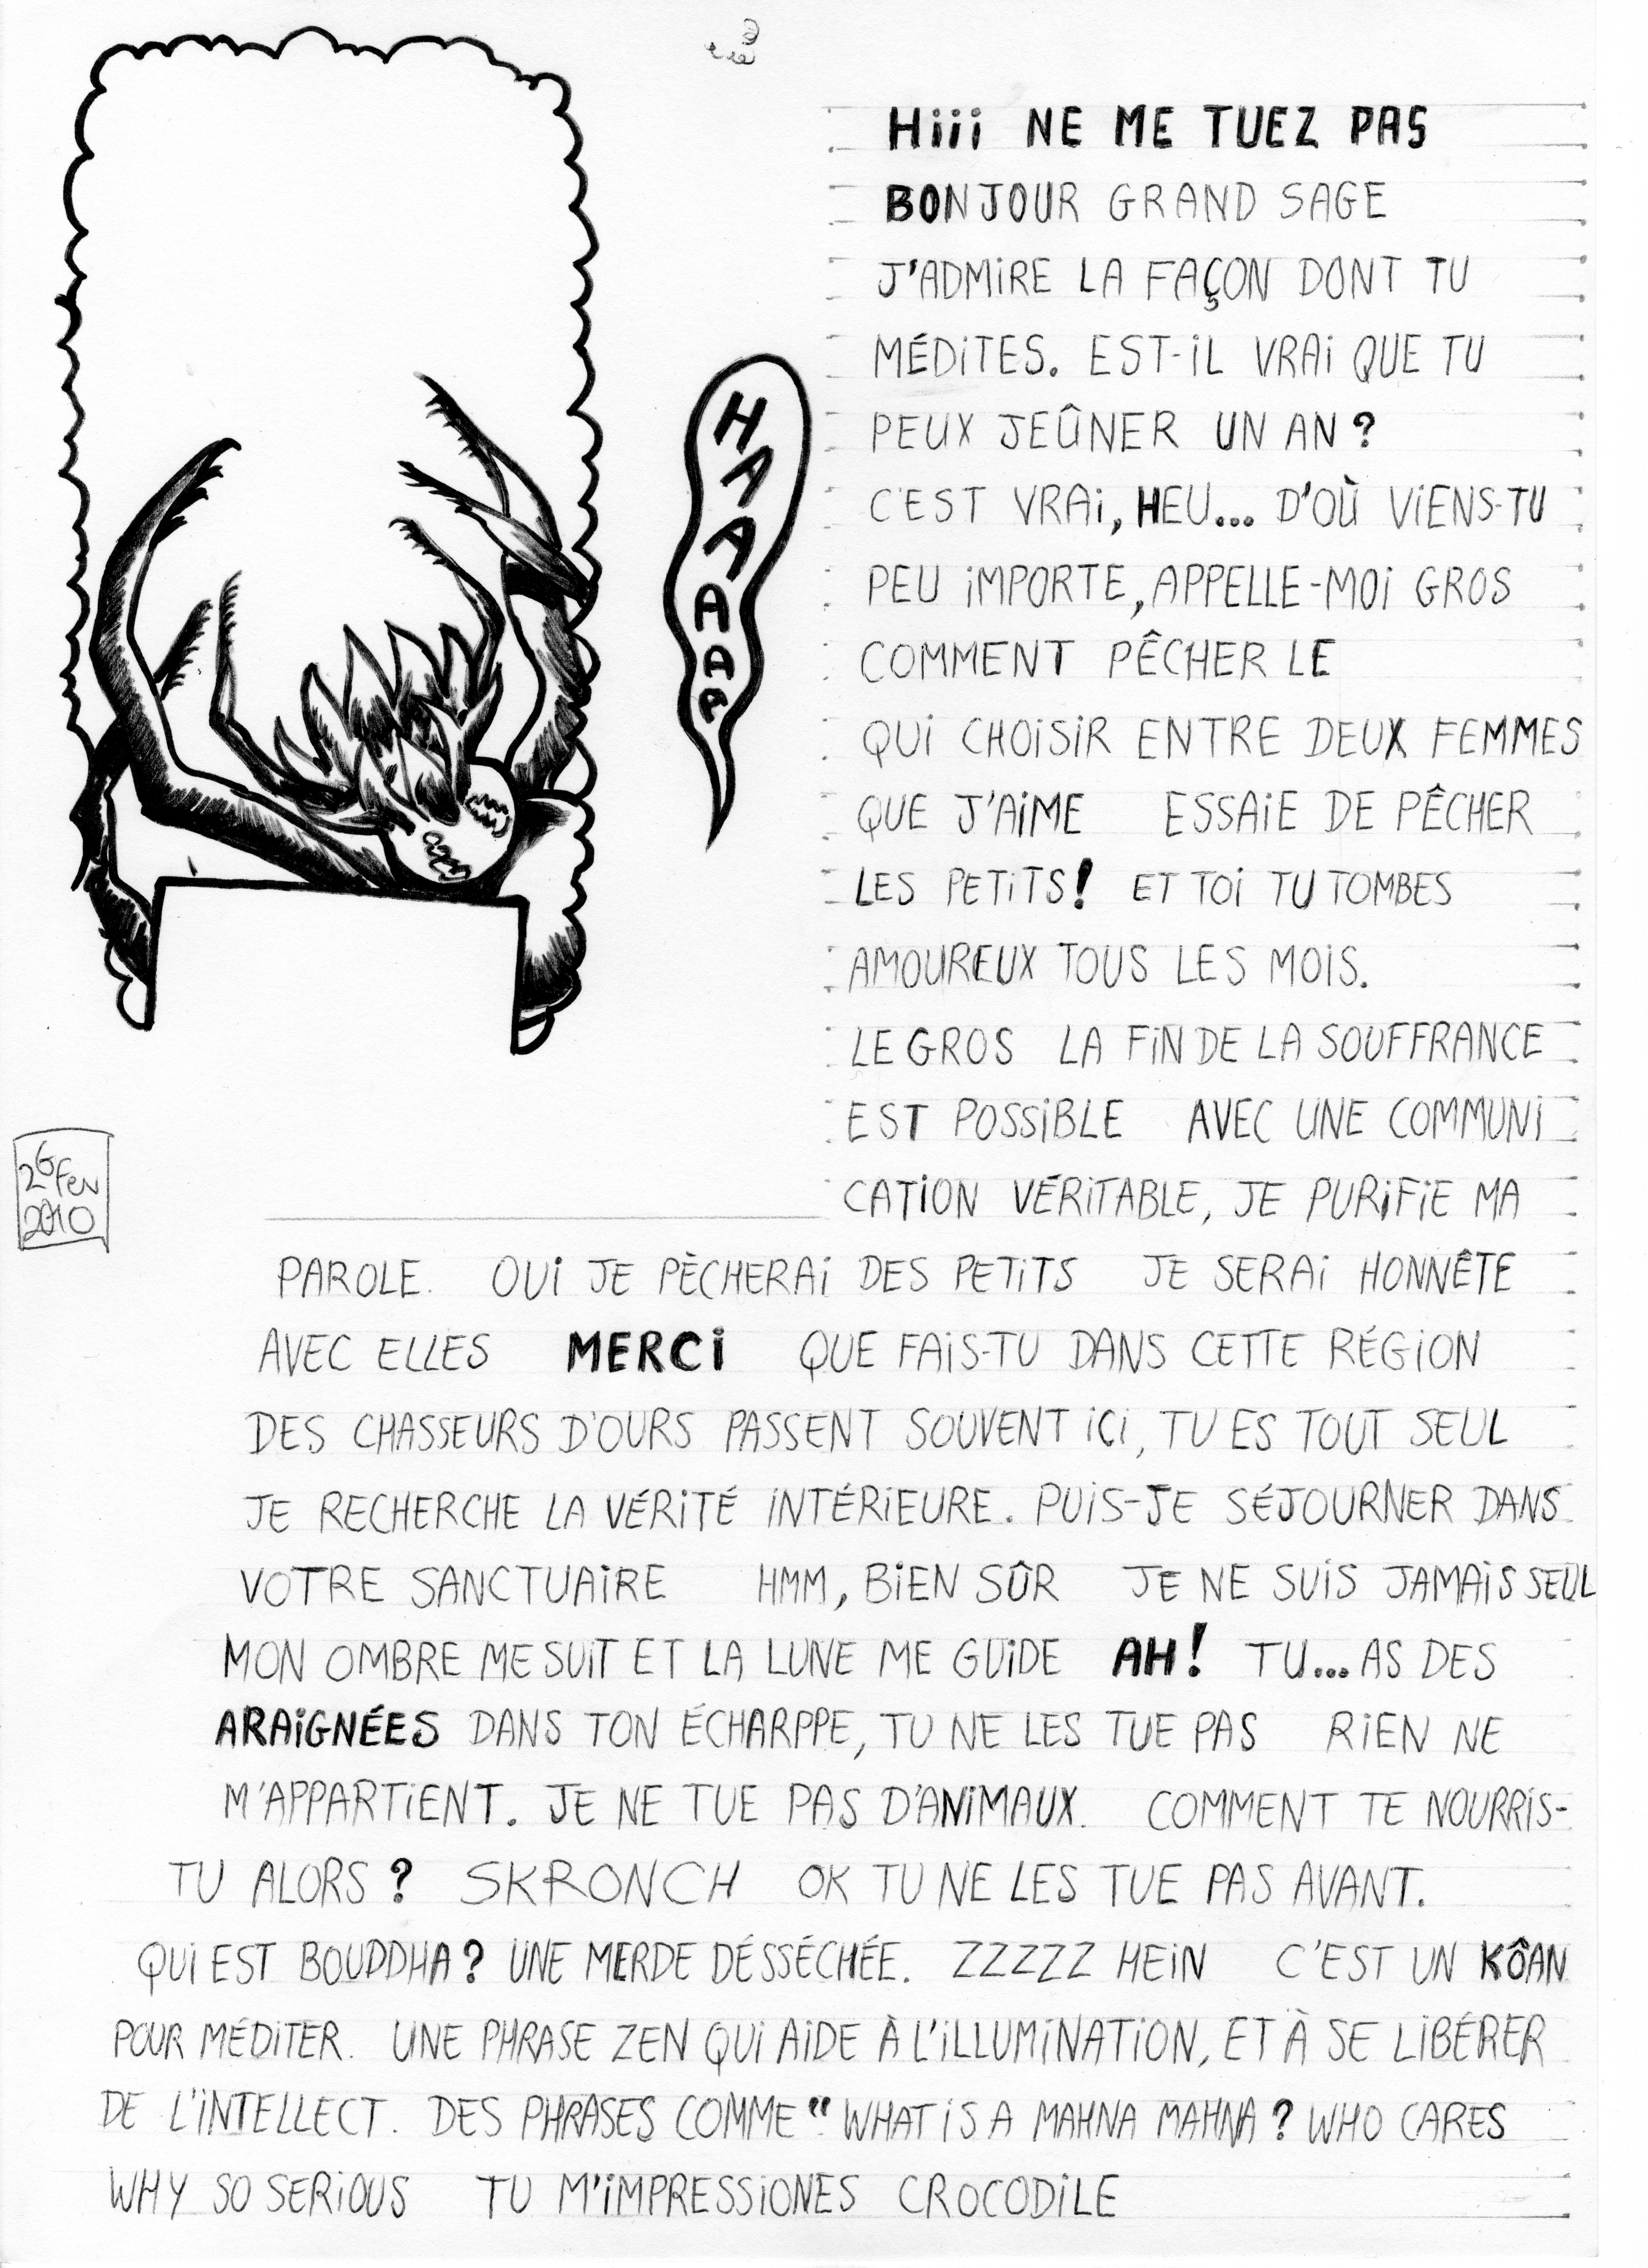 Hiii NE ME TUEZ PAS
BONJOUR GRAND SAGE
J'ADMiRE LA FAÇON DONT TU
MÉDiTES. EST-iL VRAi QUE TU
PEUX JEÛNER UN AN ?
C'EST VRAi, HEU... D'OÙ ViENS-TU
PEU iMPORTE, APPELLE-MOi GROS
COMMENT PÊCHER LE
QUi CHOiSiR ENTRE DEUX FEMMES
QUE J'AiME ESSAiE DE PÊCHER
LES PETiTS ! ET TOi TU TOMBES
AMOUREUX TOUS LES MOiS.
LE GROS LA FiN DE LA SOUFFRANCE
EST POSSiBLE AVEC UNE COMMUNi
CATiON VÉRiTABLE, JE PURiFiE MA
PAROLE. OUi JE PÈCHERAi DES PETiTS JE SERAi HONNÊTE
AVEC ELLES MERCi QUE FAiS-TU DANS CETTE RÉGiON
DES CHASSEURS D'OURS PASSENT SOUVENT iÇi, TU ES TOUT SEUL
JE RECHERCHE LA VÉRiTÉ iNTÉRiEURE. PUiS-JE SÉJOURNER DANS
VOTRE SANCTUAiRE HMM, BiEN SÛR JE NE SUiS JAMAiS SEUL
MON OMBRE ME SUiT ET LA LUNE ME GUiDE AH ! TU... AS DES
ARAiGNÉES DANS TON ÉCHARPPE, TU NE LES TUE PAS RiEN NE
M'APPARTiENT. JE NE TUE PAS D'ANiMAUX. COMMENT TE NOURRiS-
TU ALORS ? SKRONCH OK TU NE LES TUE PAS AVANT.
QUi EST BOUDDHA ? UNE MERDE DÉSSÉCHÉE. ZZZZZ HEiN C'EST UN KÔAN
POUR MÉDiTER. UNE PHRASE ZEN QUi AiDE À L'iLLUMiNATiON, ET À SE LiBÉRER
DE L'iNTELLECT. DES PHRASES COMME " WHAT iS A MAHNA MAHNA ? WHO CARES
WHY SO SERiOUS TU M'iMPRESSiONES CROCODiLE
HAAAAA
26 Fev
2010